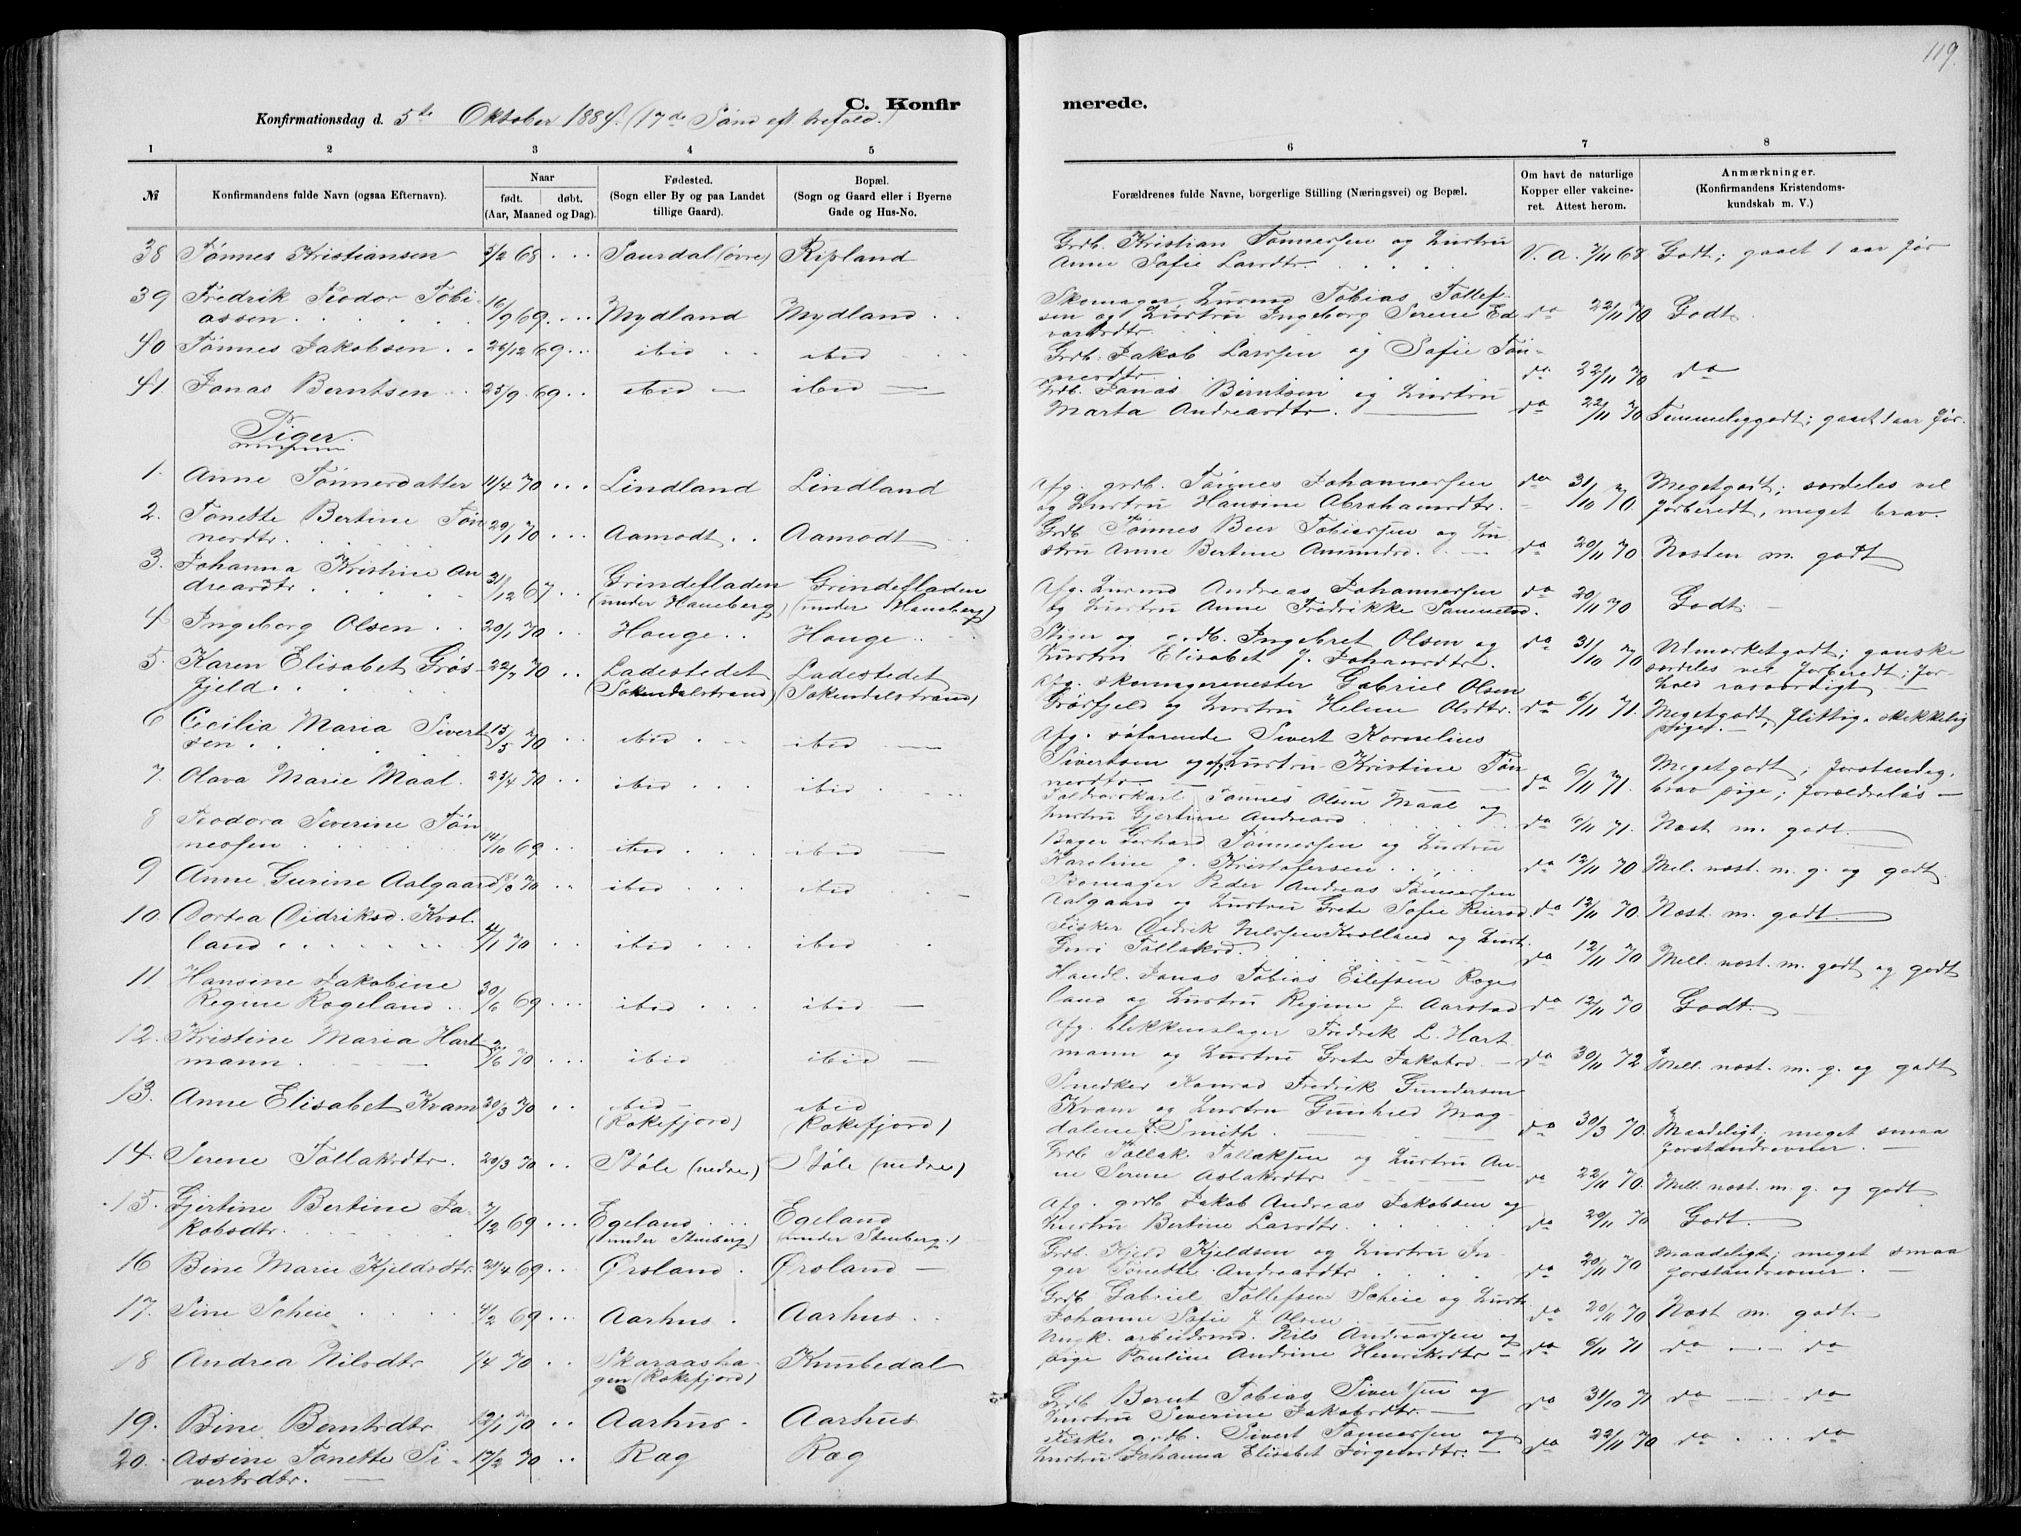 119.
C. Konfirmerede.
Konfirmationsdag d. 5te Oktober 1884. (17de Sønd eft. trefold.)
1 2 3 4 5 6 7 8
№ Konfirmandens fulde Navn (ogsaa Efternavn). Naar født. døbt. (Aar, Maaned og Dag). Fødested. (Sogn eller By og paa Landet tillige Gaard). Bopæl. (Sogn og Gaard eller i Byerne Gade og Hus-No. Forældrenes fulde Navne, borgerlige Stilling (Næringsvei) og Bopæl. Om havt de naturlige Kopper eller vakcineret. Attest herom. Anmærkninger. (Konfirmandens Kristendomskundskab m. V.)
38 Tønnes Kristiansen 5/2 68 Saurdal (øvre) Ripland Grdb. Kristian Tønnessen og Hustru
Anne Sofie Larsdtr. V. A. 7/11 68 Godt; gaaet 1 aar før
39 Fredrik Teodor Tobiassen 16/9 69 Mydland Mydland Skomager, Husmd Tobias Tollefsen og Hustru Ingeborg Serene Edvardsdtr. do 22/11 70 Godt
40 Tønnes Jakobsen 26/12 69 ibid ibid Grdb. Jakob Larssen og Sofie Tønnesdtr do 22/11 70 do
41. Jonas Berntsen 25/9 69 ibid ibid Grdb. Jonas Berntsen og Hustru
Marta Andreasdtr. do 22/11 70 Temmeliggodt; gaaet 1 aar før.
Piger.
1. Anne Tønnesdatter 11/4 70 Lindland Lindland Afg. grdb. Tønnes Johannessen
og Hustru Hansine Abrahamsdtr. do 31/10 70. Megetgodt; særdeles vel
forberedt, meget brav
2. Tonette Bertine Tønnesdtr. 29/1 70 Aamodt Aamodt Grdb. Tønnes Beer Tobiassen og Hustru Anne Bertine Amundsd. do 20/11 70. Næsten m. godt
3. Johanna Kristine Andreasdtr 31/12 67 Grindefladen
(under Haneberg) Grindefladen
(under Haneberg) Afg. Husmd Andreas Johannessen
og Hustru Anne Fredrikke do 20/11 70 Godt
4 Ingeborg Olsen 20/1 70 Hauge Hauge Stiger og grdb. Ingebret Olsen og
Hustru Elisabet f. Johansdtr. do 31/10 70 Udmærketgodt; ganske
særdeles vel forberedt; forhold
5. Karen Elisabet Grøsfjeld 22/7 70 Ladestedet
(Sokndalstrand) Ladestedet
(Sokndalstrand) Afg. Skomagermester Gabriel Olsen
Grøsfjeld og Hustru Helene Olsdtr. do 6/11 71. Megetgodt, flittig skikkelig
pige.
6 Cecilia Maria Sivertsen 15/5 70 ibid ibid Afg. søfarende Sivert Kornelius
Sivertsen og Hustru Kristine Tønnesdtr do 6/11 71. Megetgodt; forstandig,
brav pige; forældreløs
7. Olava Marie Maal. 23/4 70 ibid ibid Tønnes Olsen Maal og
Hustru Gjertine Andreasd do 6/11 71. Næst m. godt.
8 Teodora Severine Tønnessen 14/10 69 ibid ibid Bager Gerhard Tønnessen og Hustru
Karoline f. Kristofersen do 12/11 70 Mel. næst. m. g. og godt
9 Anne Gurine Aalgaard 70 ibid ibid Skomager Peder Andreas Tønnessen
Aalgaard og Hustru Grete Sofie Reiersd. do 12/11 70. Næst m. godt.
10. Dortea Didriksd. Kvolland 4/1 70 ibid ibid Fisker Didrik Nilssen Kvolland og Hust.
Guri Tollaksd. do 12/11 70 Mell. næst. m. godt og godt
11 Hansine Jakobine
Regine Rogeland 30/6 69 ibid ibid Handl. Jonas Tobias Eilefsen Rogeland og Hustru Regine f. Aarstad do 12/11 70 Godt.
12. Kristine Maria Hartmann 2/6 70 ibid ibid Afg. blikkenslager Fredrik L. Hartmann og Hustru Grete Jakobsd. do 30/11 72 Mell. næst. m. g. og godt
13. Anne Elisabet Kvam 20/3 70 ibid
(Rækefjord) ibid
(Rækefjord) Snedker Konrad Fredrik Gundersen
Kvam og Hustru Gunhild Magdalene f. Smith. do 30/3 70. Maadeligt; meget smaa
forstandsevner.
14. Serene Tollaksdtr. 20/3 70 Støle (nedre) Støle (nedre) Grdb Tollak Tollaksen og Hustru Anne Serene Aslaksdtr do 22/11 70. Mell. næst. m. g. og godt
15. Gjertine Bertine Jakobsdtr. 7/12 69 Egeland
(under Stenberg) Egeland
(under Stenberg.) Afg. grdb Jakob Andreas Jakobsen og
Hustru Bertine Larsdtr. do 20/11 70 Godt.
16 Bine Marie Kjeldsdtr. 21/4 69 Ørsland Ørsland Grdb. Kjeld Kjeldsen og Hustru Inger Tonette Andreasdtr do 20/11 70 Maadeligt; meget smaa
forstandsevner.
17. Sine Scheie 4/2 69 Aarhus Aarhus Grdb Gabriel Tollefsen Scheie og Hustr.
Johanne Sofie f Olsen do 20/11 70 Næst m. godt.
18 Andrea Nilsdtr 14 70 Skaraashagen (Rækefjord) Knubedal Ungk. arbeidsmd. Nils Andreassen og
pige Pauline Andrine Henriksdtr do 6/11 71 do do
19. Bine Berntsdtr 12/1 70 Aarhus Aarhus Grdb Bernt Tobias Sivertsen og
Hustru Severine Jakobsdtr. do 31/10 71 do do
20. Assine Tonette Sivertsdtr. 17/2 70 Ræg Ræg Fisker grdb. Sivert Tønnessen og
Hustru Johanna Elisabet Jørgensdtr. do 22/11 70 do do